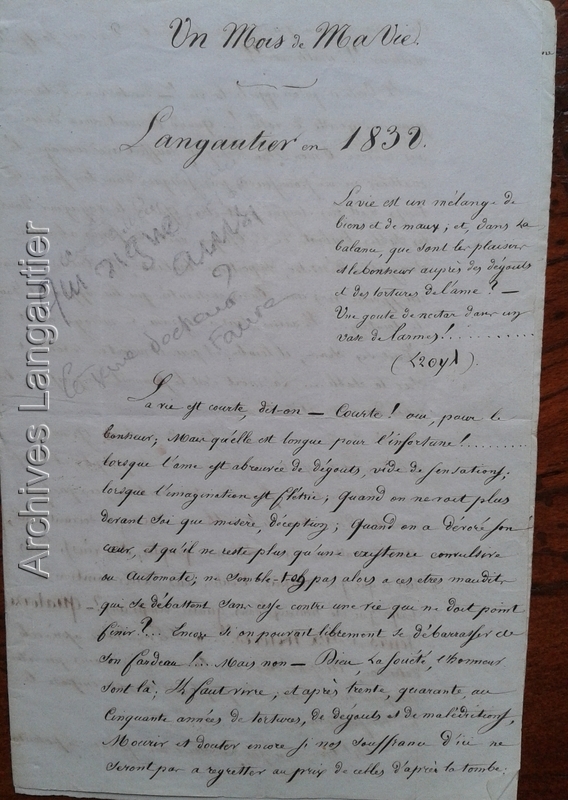 Un Mois de Ma Vie.
Langautier en 1832.
La vie est un mélange de
biens et de maux; et, dans la
balance, que sont les plaisirs
et le bonheur auprès des dégouts
et des tortures de l'ame? —
Une goute de nectar dans un
vase de larmes!...........
qui signe
ainsi?
le vieux docteur
Faure
La vie est courte, dit-on — Courte! oui, pour le
bonheur; Mais qu'elle est longue pour l'infortune!........
lorsque l'ame est abreuvée de dégouts, vide de sensations;
lorsque l'imagination est flétrie; Quand on ne voit plus
devant soi que misère, déception; Quand on a dévoré son
cœur, et qu'il ne reste plus qu'une existence convulsive
ou automate, ne semble-t-on pas alors a ces etres maudits
que se débattent sans cesse contre une vie que ne doit point
finir?... Encore si on pouvait librement se débarrasser de
son fardeau!... Mais non — Dieu, La société, l'honneur
sont là. Il faut vivre; et après trente, quarante, ou
cinquante années de tortures, de dégouts et de malédictions,
Mourir et douter encore si nos souffrance d'ici ne
seront pas a regretter au prix de celles d'après la tombe.
Archives Langautier